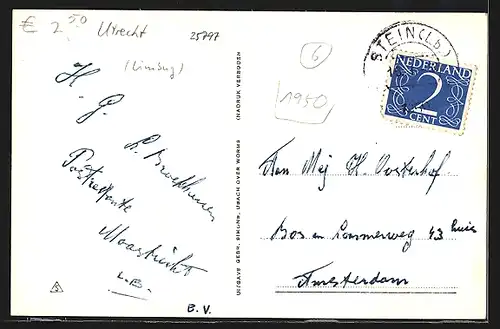 € 2 50
Utrecht
25797
(Limburg)
6
1950
STEIN (Lb.)
NEDERLAND
2
CENT
H. G.
Poste restante
Maastricht
L.B.
B. V.
(NADRUK VERBODEN
UITGAVE GEBR. SIMONS, UBACH OVER WORMS
Aan Mej H. Oosterhof
Bos en Lommerweg 43 huis
Amsterdam